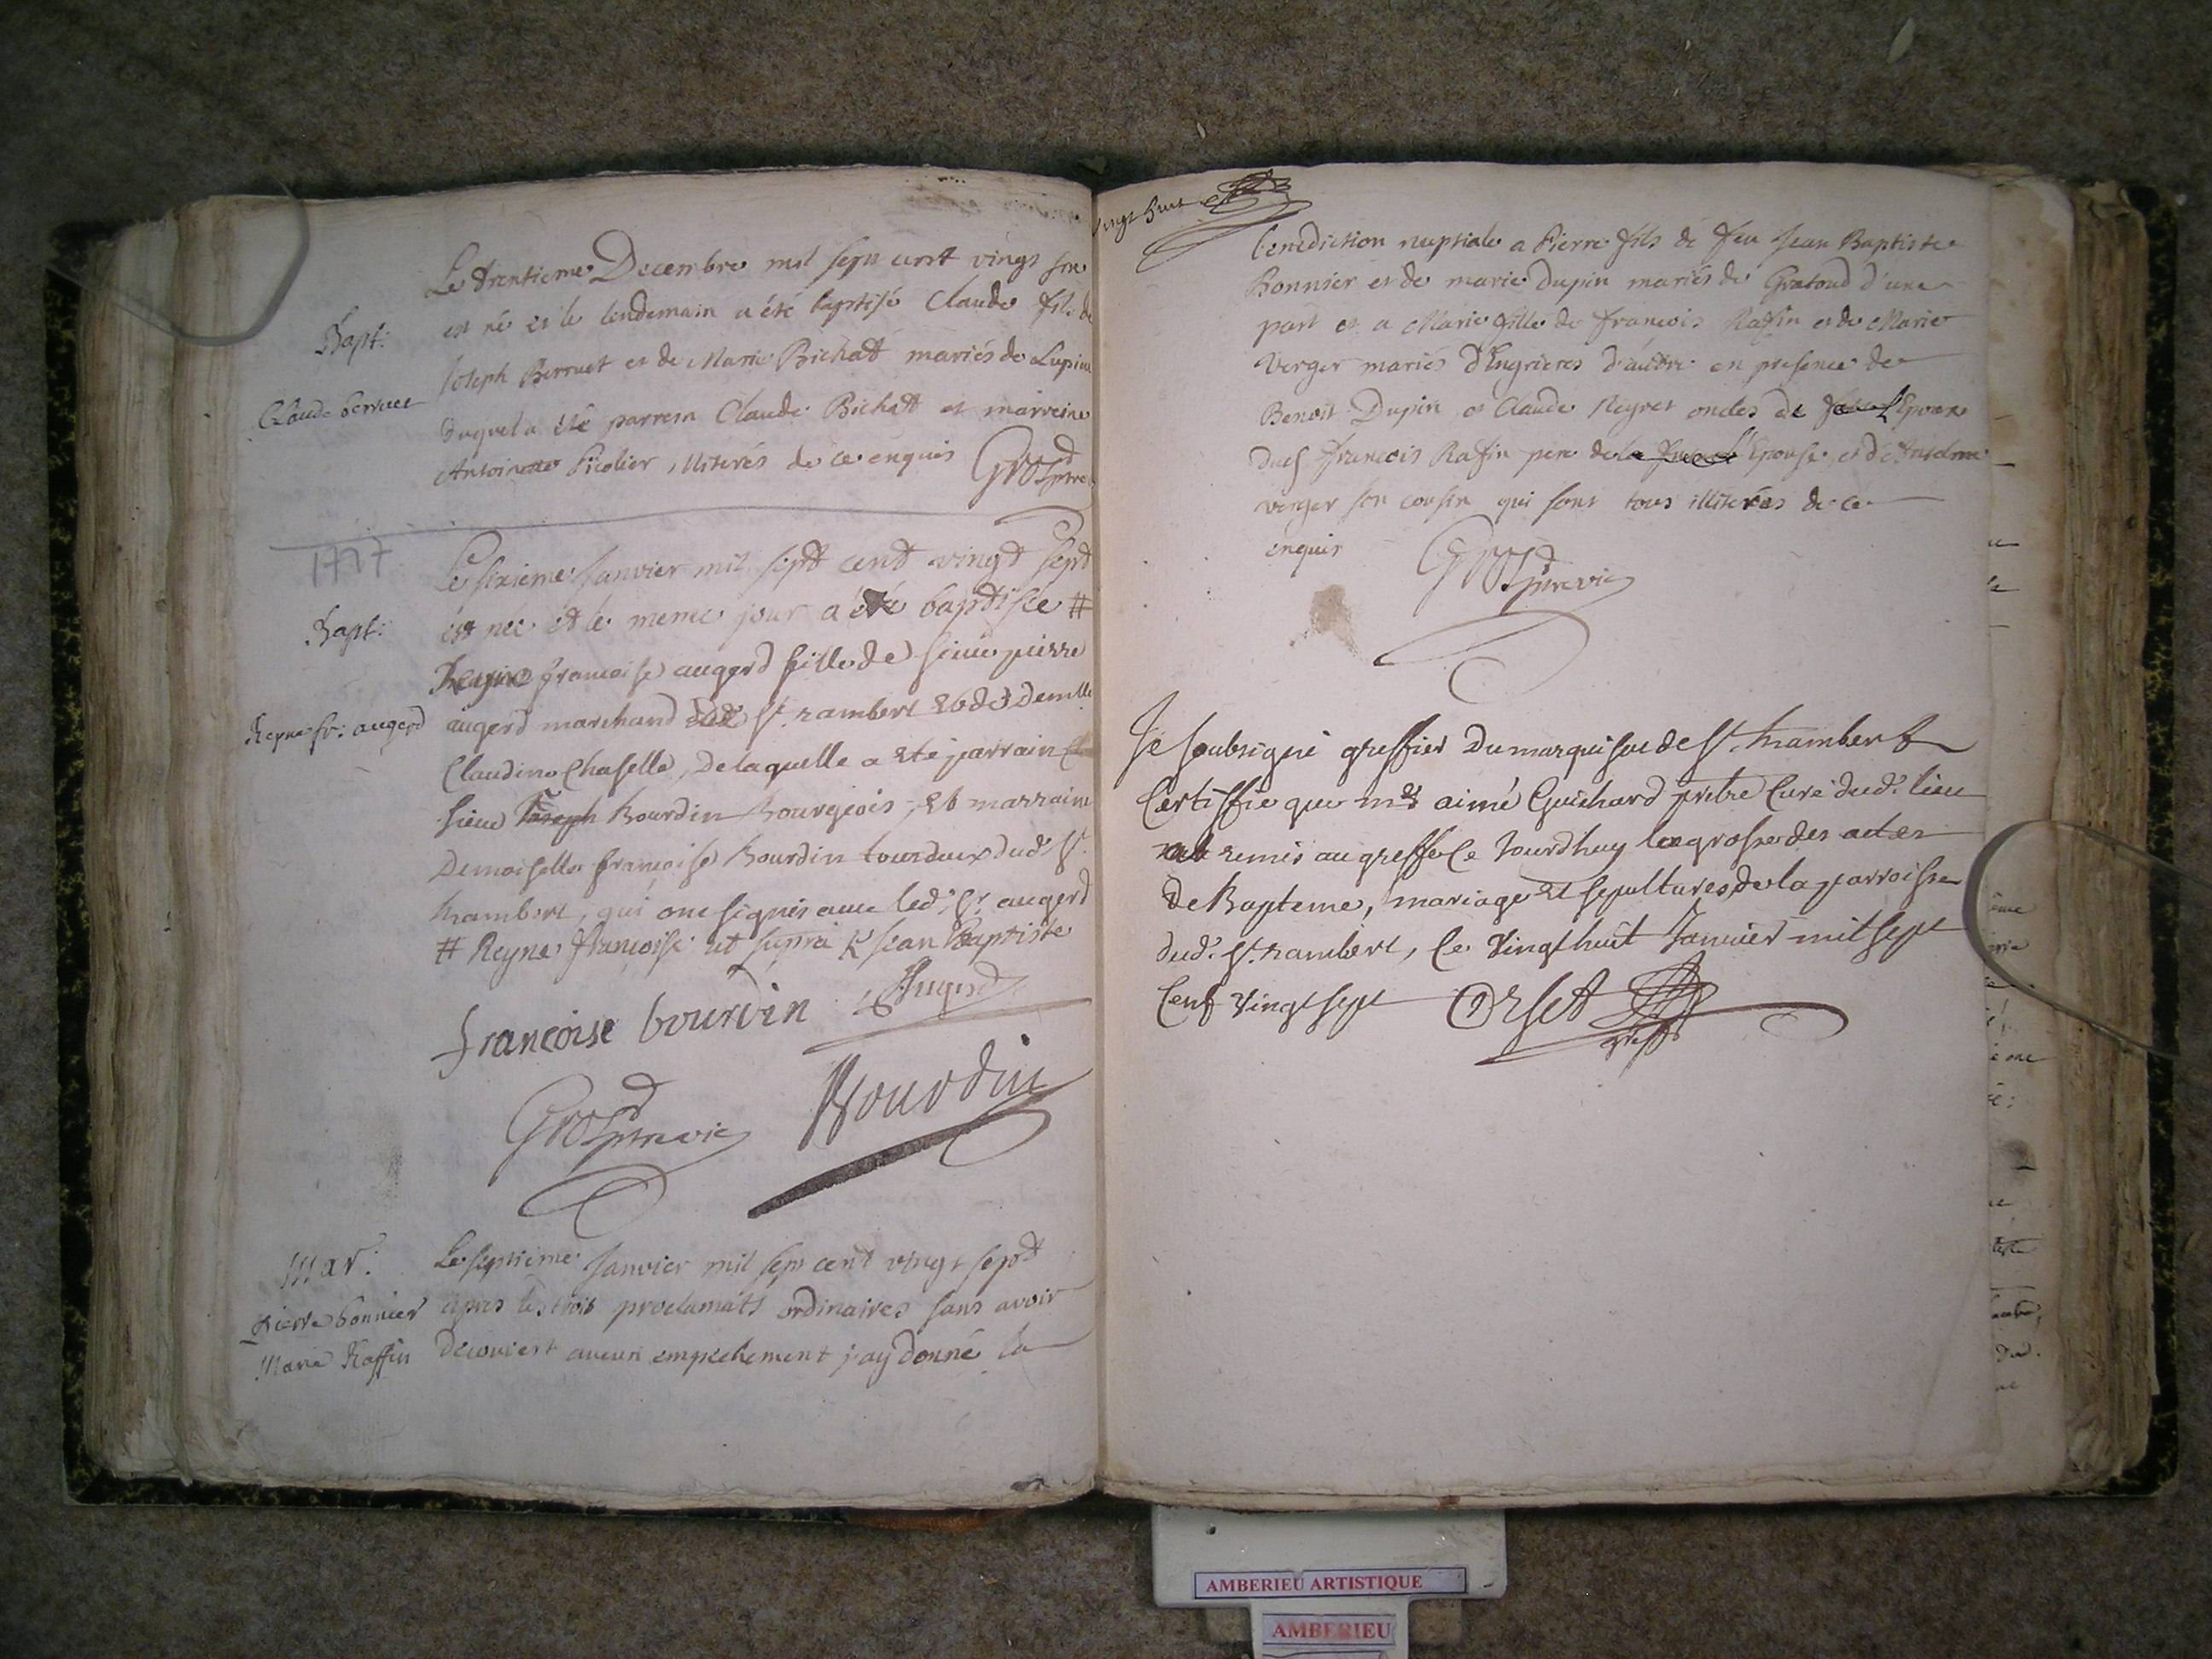 Le trentieme Decembre mil sept cent vingt six
Bapt:
est né et le lendemain a été baptisé Claude fils de
Joseph Berruet et de Marie Bichatt mariés de Lupieu
Claude berruet
duquel a été parrein Claude Bichatt et marreine
Antoinette Picolier illiterés de ce enquis
Gros
1727
Le sixieme Janvier mil sept cent vingt sept
Bapt:
est née et le meme jour a été baptisée #
françoise augerd fille de sieur pierre
Reyne fr: augerd
augerd marchand dud. St. rambert et de demlle
Claudine Chapelle, de laquelle a eté parrain
sieur Joseph Bourdin Bourgeois, et marraine
Demoiselle françoise Bourdin tous deux dud. St.
Rambert, qui ont signés avec led. Sr. augerd
# Reyne françoise ut supra & Jean Baptiste
françoise bourdin Augerd
Gros Bourdin
mar:
Le septieme Janvier mil sept cent vingt sept
Pierre bonnier
apres les trois proclamats ordinaires sans avoir
Marie Raffin
decouvert aucun empechement j'ay donné la
vingt huit
benediction nuptiale a Pierre fils de feu Jean Baptiste
Bonnier et de marie Dupin mariés de Gratoud d'une
part et a Marie fille de francois Rafin et de Marie
Verger mariés d'Ingrieres d'autre en presence de
Benoit Dupin et Claude Negret oncles de l'Epoux
dud. francois Rafin pere de l'Epouse et d'Anselme
verger son cousin qui sont tous illiterés de ce
enquis
Gros
Je soubsigné greffier du marquisat de St. Rambert
Certiffie que mre aimé Guichard prêtre Curé dud. lieu
a remis au greffe ce Jourdhuy la grosse des actes
de Bapteme, mariage et sepultures, de la parroisse
dud. St. rambert, ce vingt huit Janvier mil sept
Cent vingt sept Orset
greff
AMBERIEU ARTISTIQUE
AMBERIEU